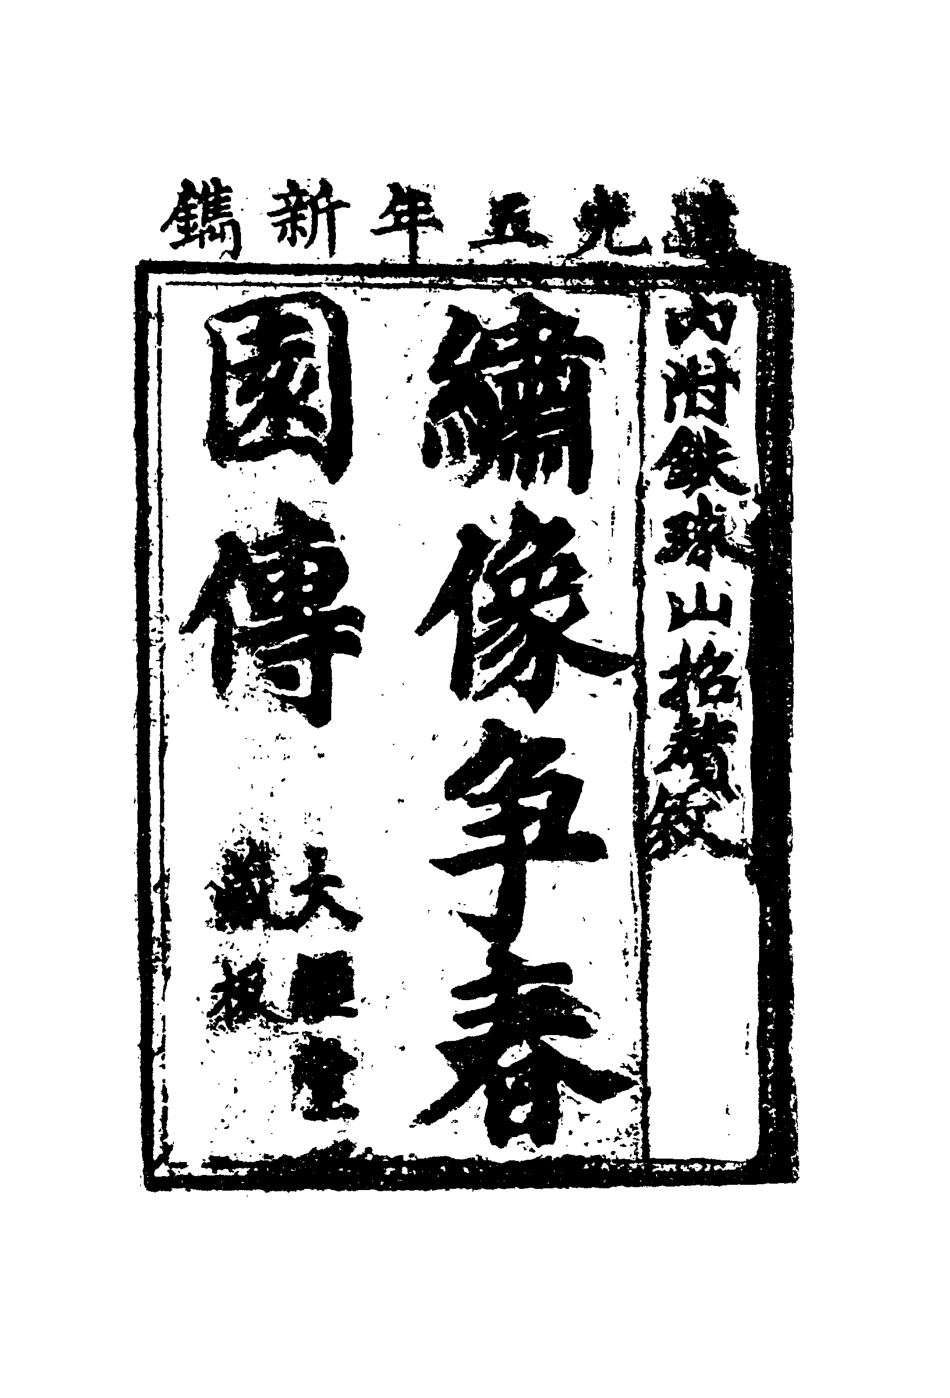 道光五年新鐫
內附鉄球山招贅敘
繡像争春
園傳
大堂
藏板